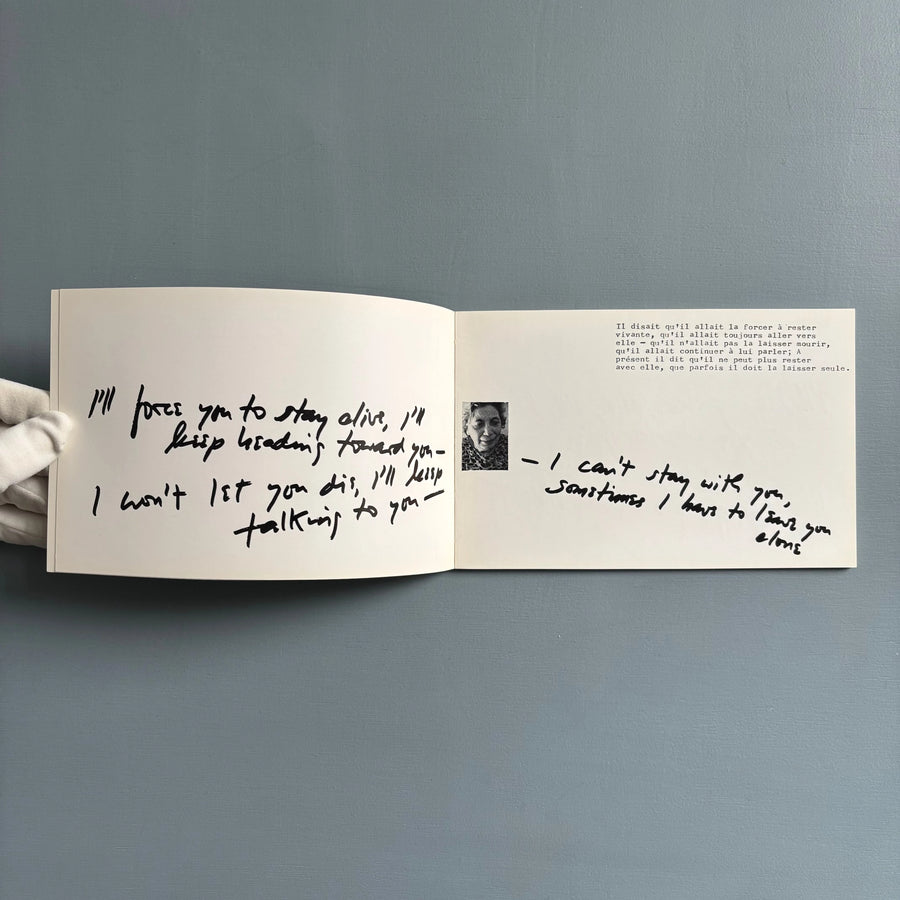 I'll force you to stay alive, I'll
keep heading toward you—
I won't let you die, I'll keep
talking to you—
Il disait qu'il allait la forcer à rester
vivante, qu'il allait toujours aller vers
elle — qu'il n'allait pas la laisser mourir,
qu'il allait continuer à lui parler; A
présent il dit qu'il ne peut plus rester
avec elle, que parfois il doit la laisser seule.
— I can't stay with you,
sometimes I have to leave you
alone